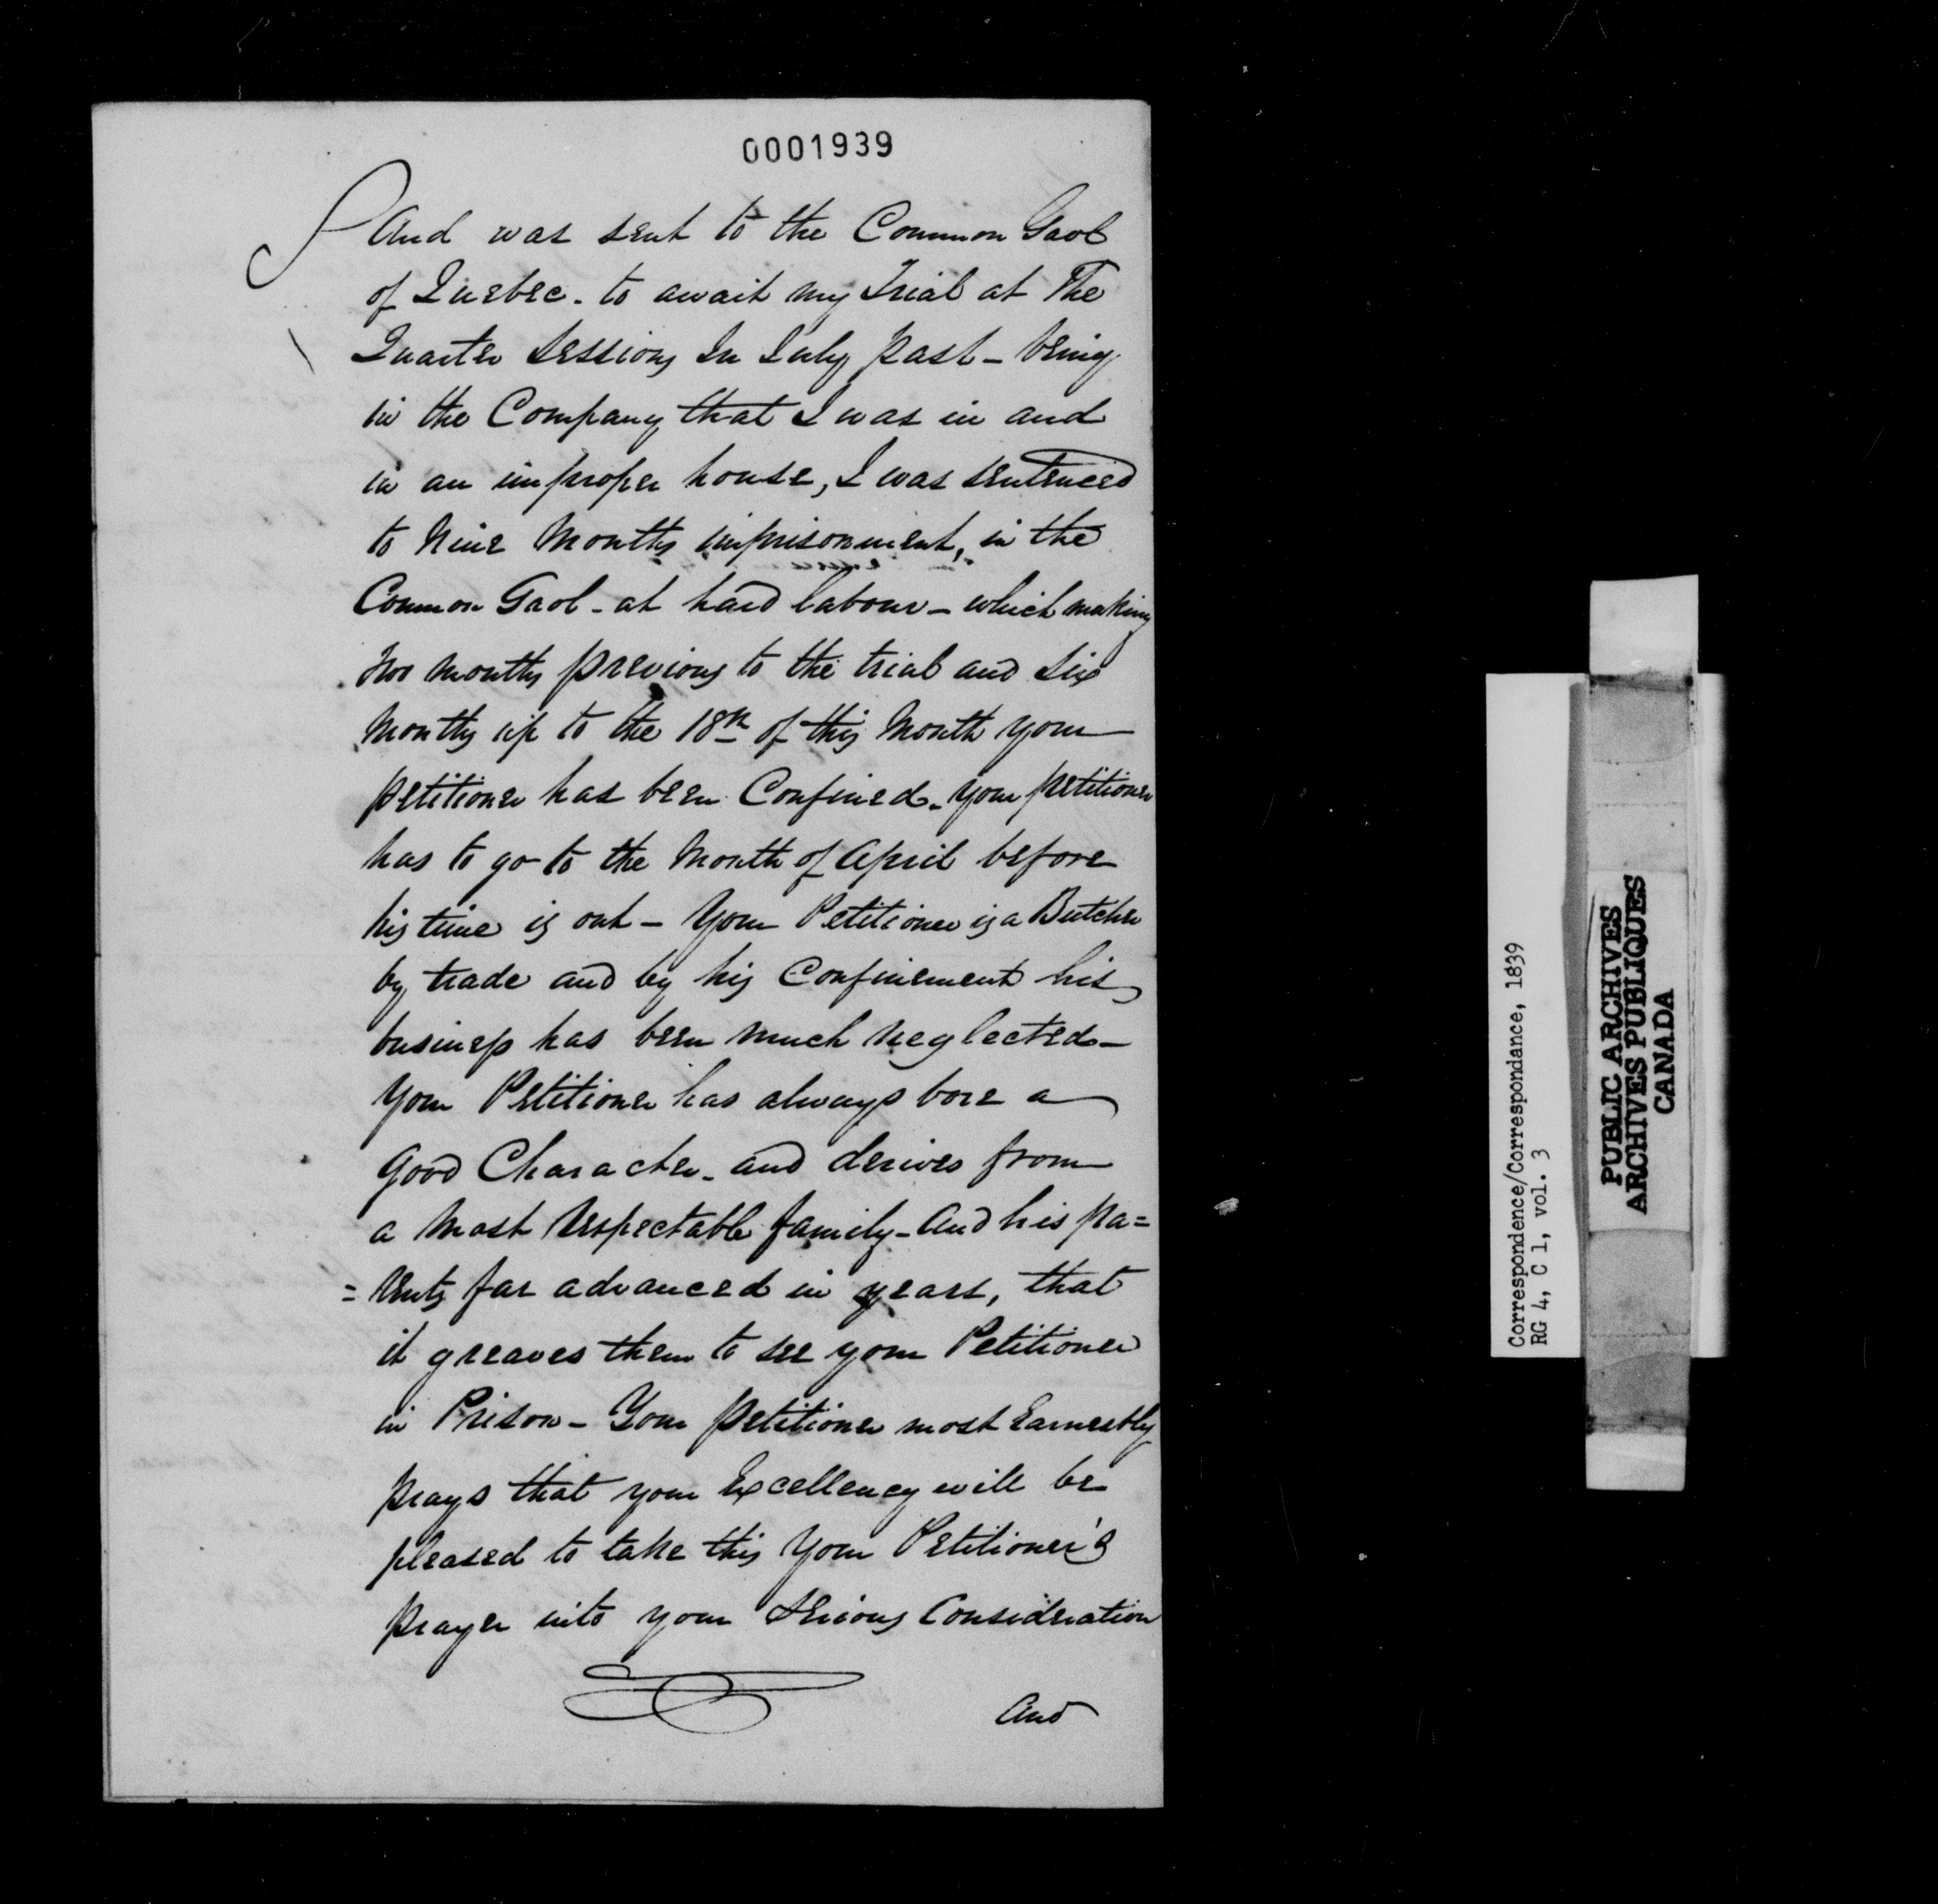 0001939
And was sent to the Common Gaol
of Quebec. to await my Trial at The
Quarter Sessions In July past - being
in the Company that I was in and
in an improper house, I was sentenced
to Nine Months imprisonment, in the
Common Gaol - at hard labour - which making
two months previous to the trial and Six
Months up to the 18th of this Month your
petitioner has been Confined. your petitioner
has to go to the Month of April before
his time is out - Your Petitioner is a Butcher
by trade and by his Confinement his
business has been much neglected -
Your Petitioner has always bore a
good Character. and derives from
a most respectable family - And his pa=
=rents far advanced in years, that
it greaves them to see your Petitioner
in Prison - Your petitioner most Earnestly
prays that your Excellency will be
pleased to take this Your Petitioner's
prayer into your Serious Consideration
And
Correspondence/Correspondance, 1839
RG 4, C 1, vol. 3
PUBLIC ARCHIVES
ARCHIVES PUBLIQUES
CANADA